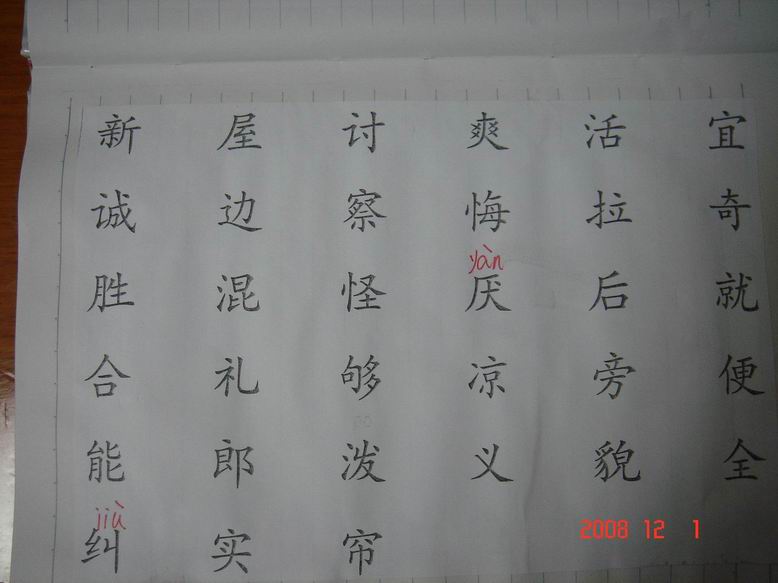 新 屋 讨 爽 活 宜
诚 边 察 悔 拉 奇
yàn
胜 混 怪 厌 后 就
合 礼 够 凉 旁 便
能 郎 泼 义 貌 全
jiù
纠 实 帘
2008 12 1